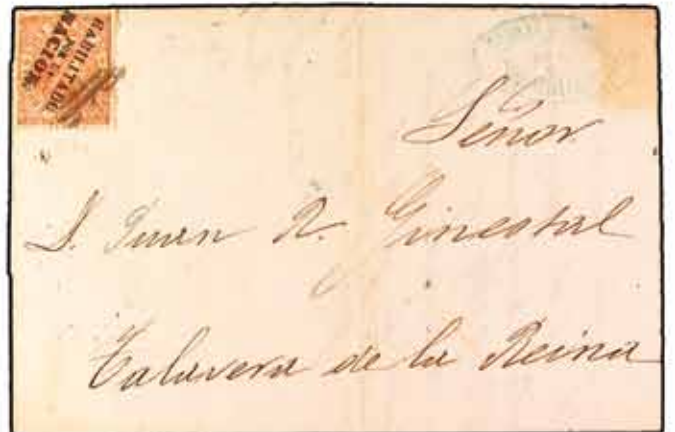 HABILITADO
POR LA
NACION.
Señor
D. Juan R. Ginestal
Talavera de la Reina